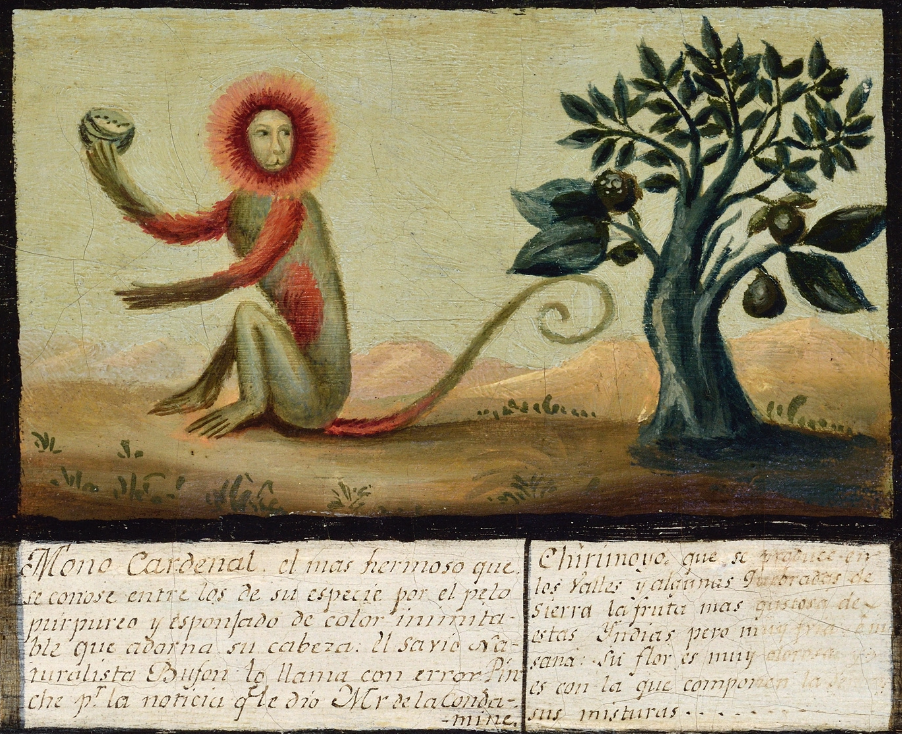 Mono Cardenal. el mas hermoso que
se conose entre los de su especie por el pelo
purpureo y esponjado de color inimita-
ble que adorna su cabeza: El savio Na-
turalista Bufon lo llama con error Pin
che pr. la noticia qe. le dio Mr de la Conda-
-mine.
Chirimoyo. que se produce en
los Valles y algunas Quebradas de
Sierra la fruta mas gustosa de
estas Yndias pero muy fria
sana: Su flor es muy olorosa
es con la que componen la
sus misturas . . . . . . . . .